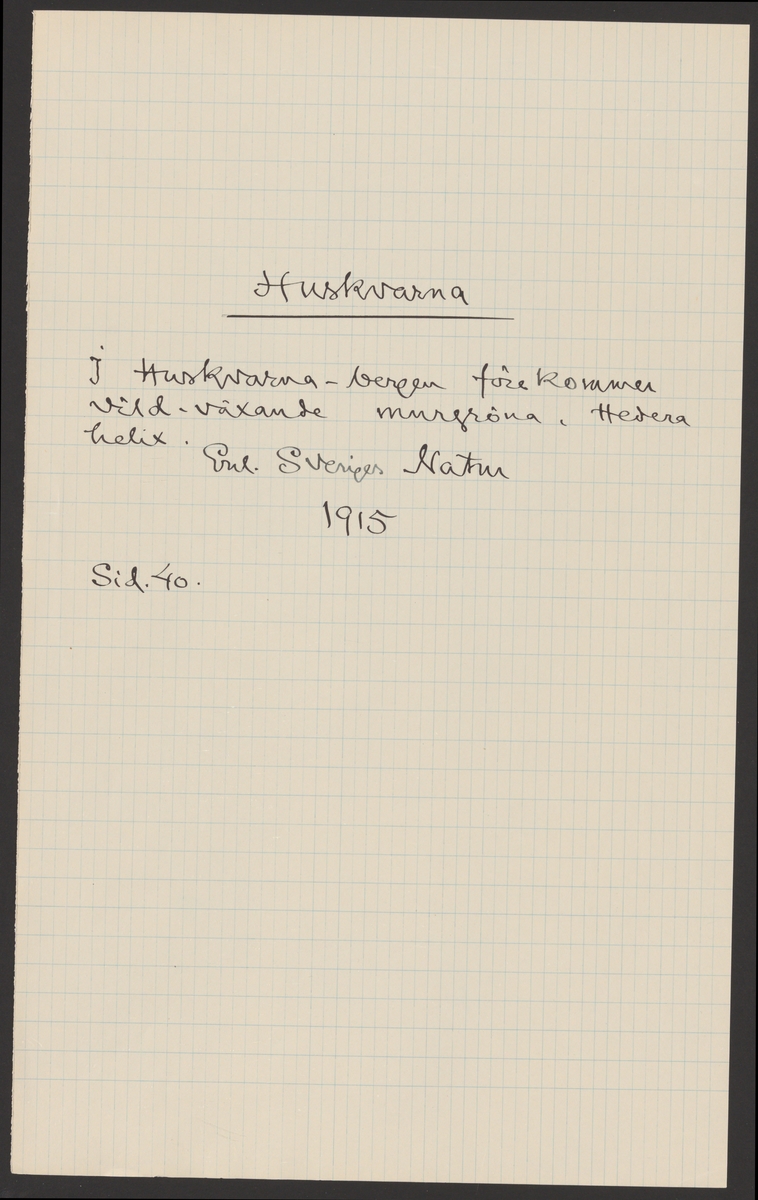 Huskvarna
I Huskvarna-bergen förekommer
vild-växande murgröna, Hedera
helix.
Enl. Sveriges Natur
1915
Sid. 40.